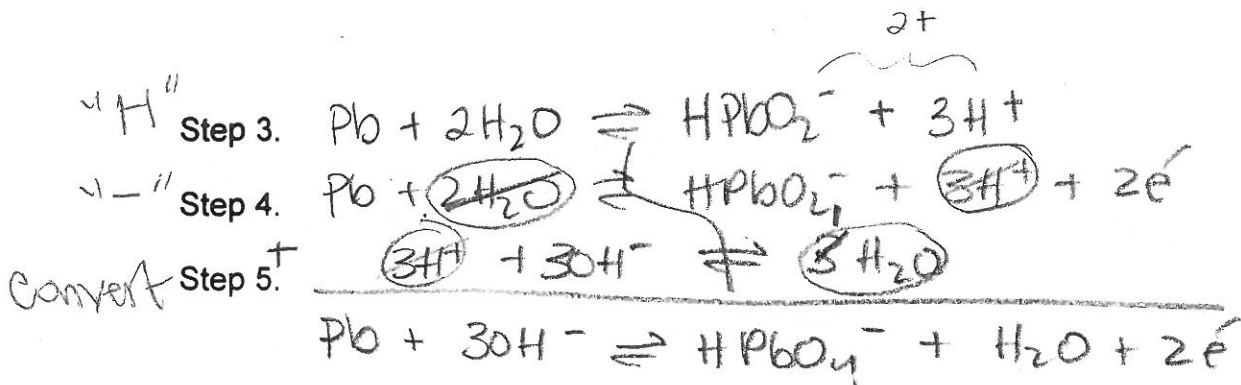 2+
"H" Step 3. Pb + 2H₂O ⇌ HPbO₂⁻ + 3H⁺
"−" Step 4. Pb + 2H₂O ⇌ HPbO₂⁻ + 3H⁺ + 2é
Convert Step 5. + 3H⁺ + 3OH⁻ ⇌ 3H₂O
Pb + 3OH⁻ ⇌ HPbO₄⁻ + H₂O + 2é